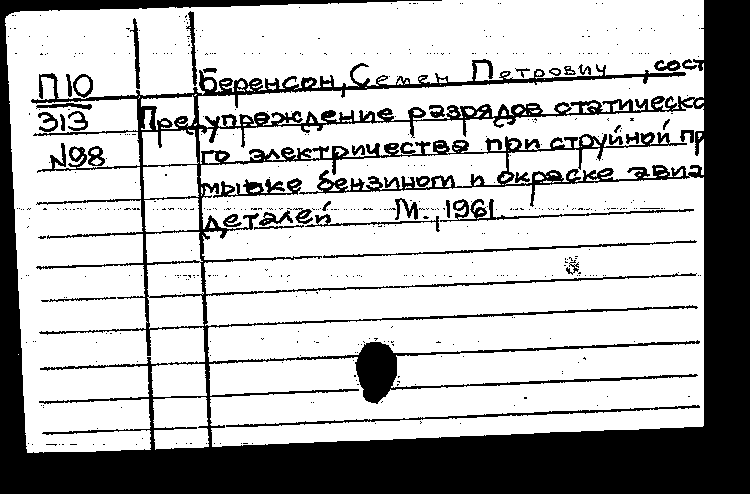 П10 Беренсон, Семен Петрович, сост
313 Предупреждение разрядов статическо
№98 го электричества при струйной пр
мывке бензином и окраске авиа
деталей М., 1961.